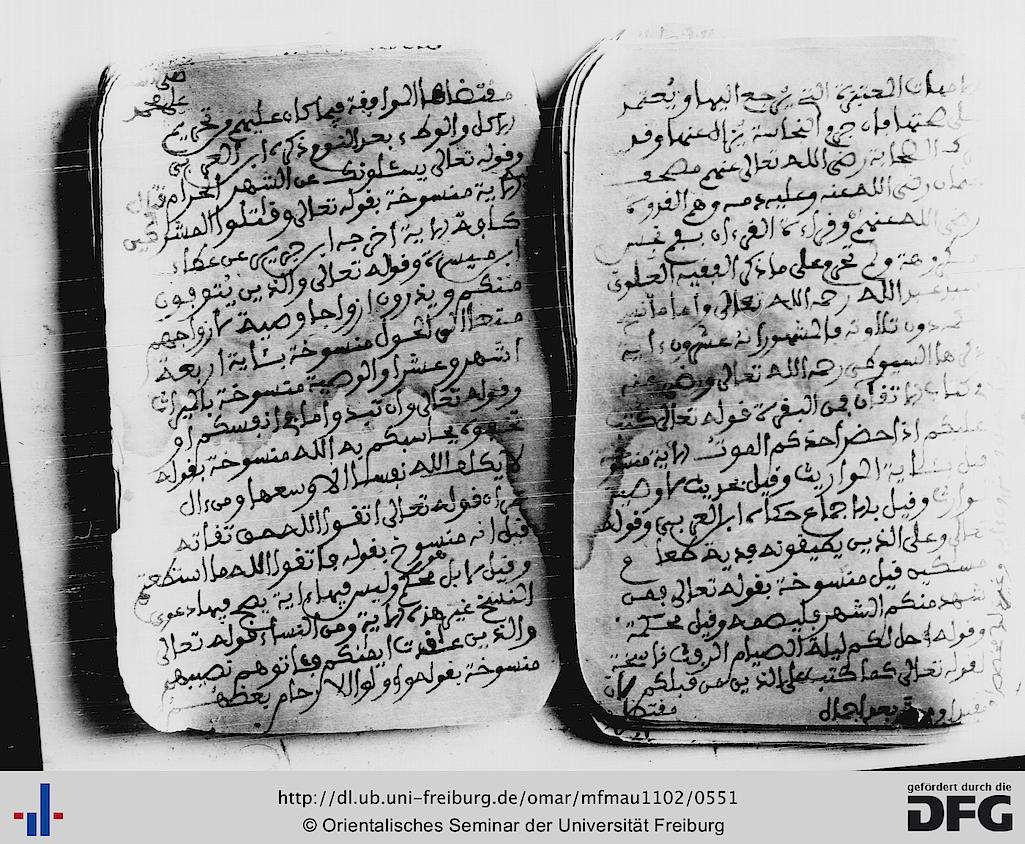 المعتبرة التي يرجع اليها ويعتمد
على صحتها فان جرو النحاسة يزال عنها وقد
الصحابة رضي الله تعالى عنهم مصحف
عثمان رضي الله عنه وعليه دمه وهم القدوة
رضي الله عنهم وقراءة القرءان
ولم على ما ذكر الفقيه العلوي
عبد الله رحمه الله تعالى واما ما نسخ
دون تلاوته فالمشهور انه عشرون ءاية
السيوطي رحمه الله تعالى ورضي عنه
الاتقان فمن البقرة قوله تعالى كتب
عليكم اذا حضر احدكم الموت الاية منسوخة
قيل بآية المواريث وقيل بحديث لا وصية
لوارث وقيل بالاجماع حكاه ابن العربي وقوله
تعالى وعلى الذين يطيقونه فدية طعام
مسكين قيل منسوخة بقوله تعالى فمن
شهد منكم الشهر فليصمه وقيل محكمة
وقوله احل لكم ليلة الصيام الرفث ناسخة
لقوله تعالى كما كتب على الذين من قبلكم لان
مقتضا
مقتضاها الموافقة فيما كان عليهم وتحريم
الاكل والوطء بعد النوم ذكره ابن العربي
وقوله تعالى يسئلونك عن الشهر الحرام قتال
الاية منسوخة بقوله تعالى وقاتلوا المشركين
كافة الاية اخرجه ابن جرير عن عطاء
ابن ميسرة وقوله تعالى والذين يتوفون
منكم ويذرون ازواجا وصية لازواجهم
متاعا الى الحول منسوخة بئاية اربعة
اشهر وعشرا والوصية منسوخة بالميراث
وقوله تعالى وان تبدوا ما في انفسكم او
تخفوه يحاسبكم به الله منسوخة بقوله
لا يكلف الله نفسا الا وسعها ومن ال
عمران قوله تعالى اتقوا الله حق تقاته
قيل انه منسوخ بقوله فاتقوا الله ما استطعتم
وقيل لا بل هو محكم وليس فيها ءاية يصح فيها دعوى
النسخ غير هذه الاية ومن النساء قوله تعالى
والذين عاقدت ايمنكم فئاتوهم نصيبهم
منسوخة بقوله واولوا الارحام بعضهم
http://dl.ub.uni-freiburg.de/omar/mfmau1102/0551
© Orientalisches Seminar der Universität Freiburg
gefördert durch die
DFG